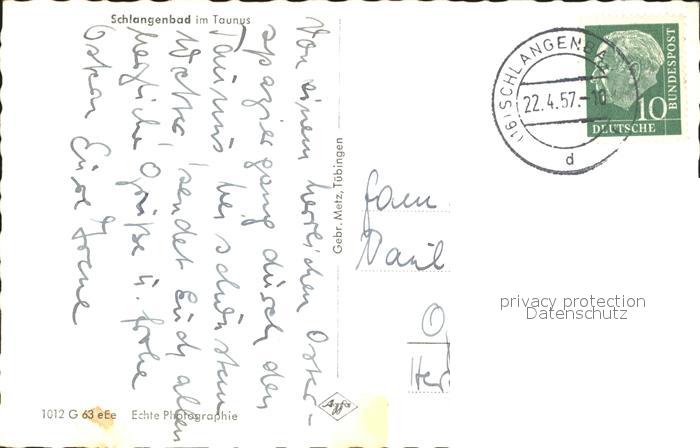 Schlangenbad im Taunus
Von einem herrlichen Oster-
spaziergang durch den
Taunus bei schönstem
Wetter sendet Euch allen
herzliche Grüße u. frohe
Ostern Eure Irene
Gebr. Metz, Tübingen
Fam.
Paul
O
Her
(16) SCHLANGENBAD
22.4.57.-10
d
10
DEUTSCHE
BUNDESPOST
privacy protection
Datenschutz
1012 G 63 eEe Echte Photographie
Agfa